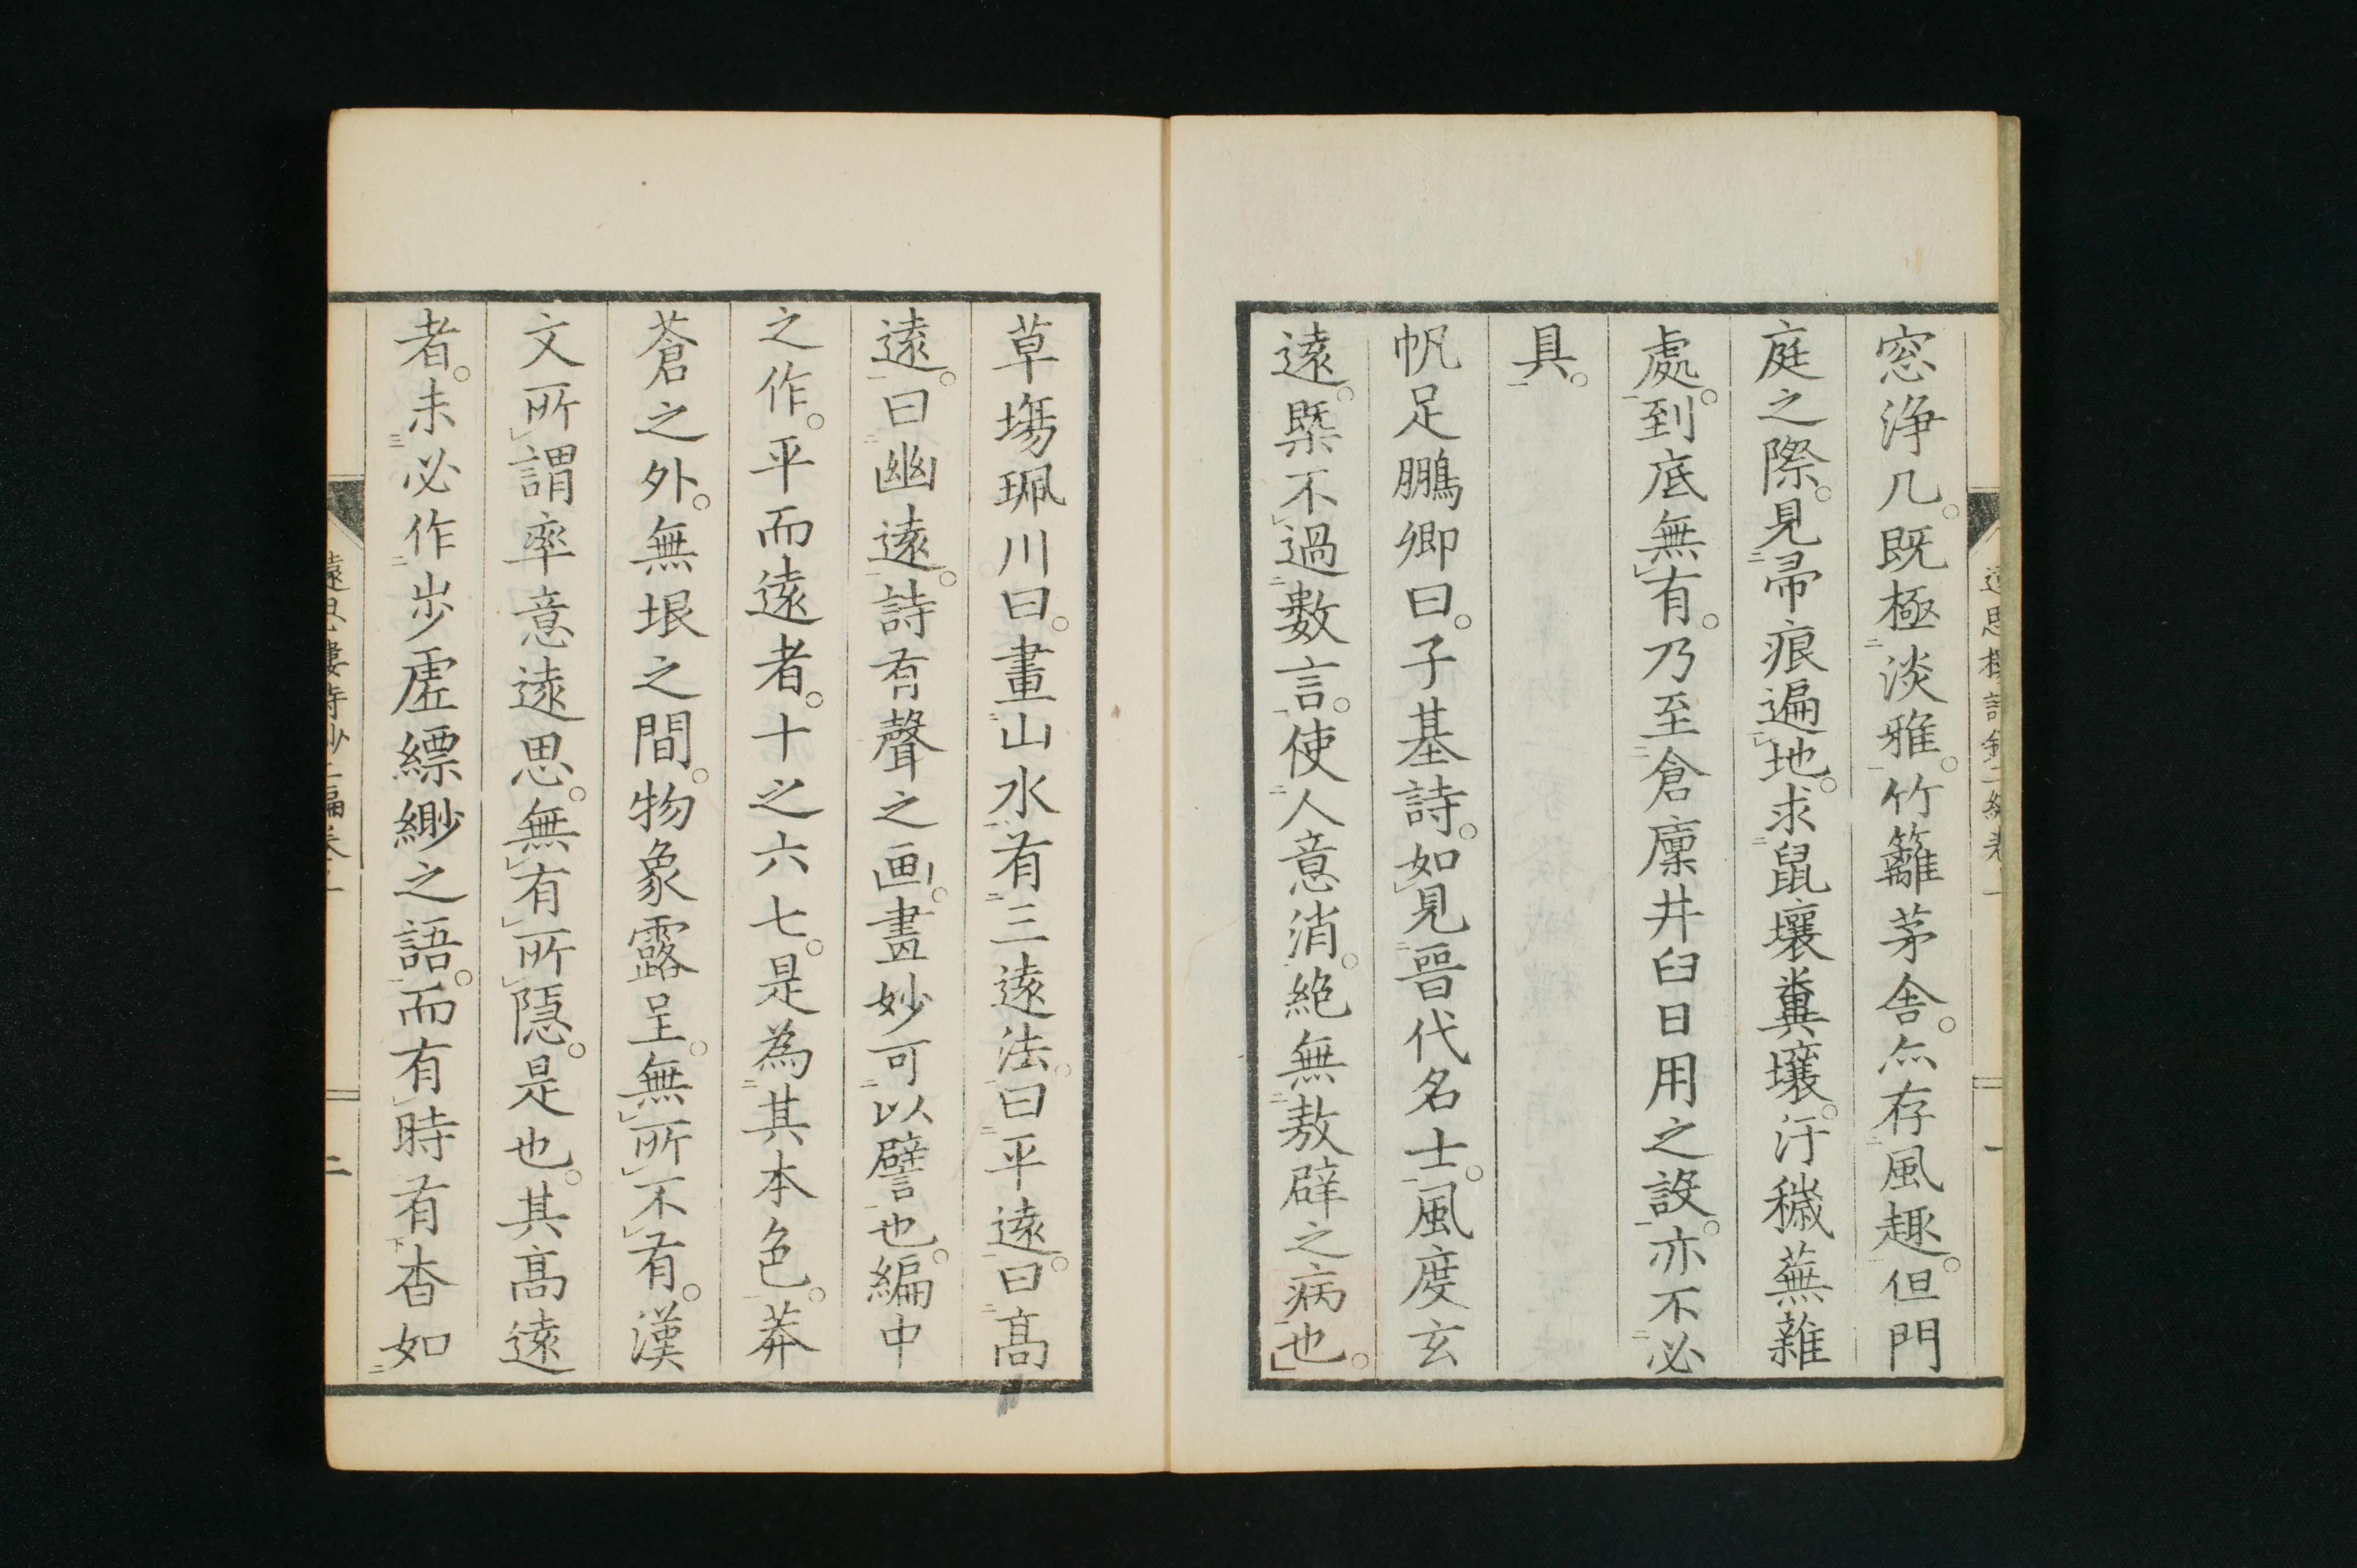 窓浄几。既極淡雅。竹籬茅舎。亦存風趣。但門
庭之際。見帚痕遍地。求鼠壤糞壤。汙穢蕪雜
處。到底無有。乃至倉廩井臼日用之設。亦不必
具。
帆足鵬卿曰。子基詩。如見晉代名士。風度玄
遠。槩不過數言。使人意消。絶無敖辟之病也。
草塲珮川曰。畫山水有三遠法。曰平遠。曰髙
遠。曰幽遠。詩有聲之画。畫妙可以譬也。編中
之作。平而遠者。十之六七。是為其本色。莽
蒼之外。無垠之間。物象露呈。無所不有。漢
文所謂率意遠思。無有所隱。是也。其髙遠
者。未必作歩虛縹緲之語。而有時有杳如
遠思樓詩鈔二編卷一
二